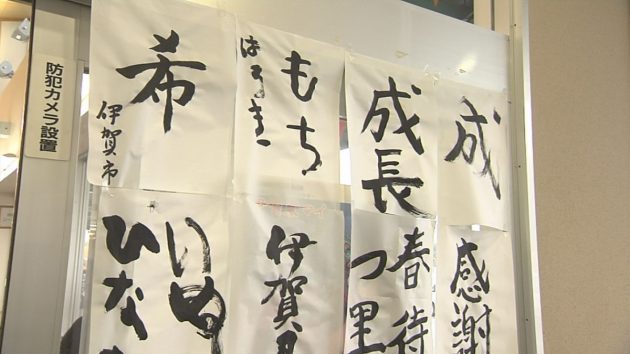 防犯カメラ設置
希
伊賀市
もち
はるき
成長
成
いぬ
ひな
伊賀
春待
つ里
感謝